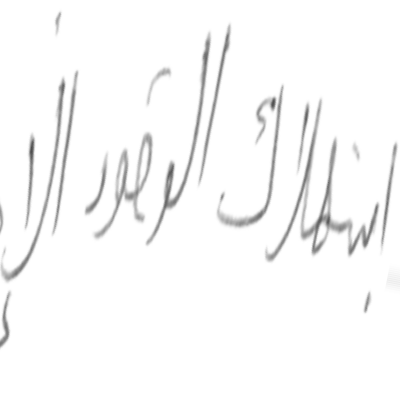 استهلاك الوقود الا